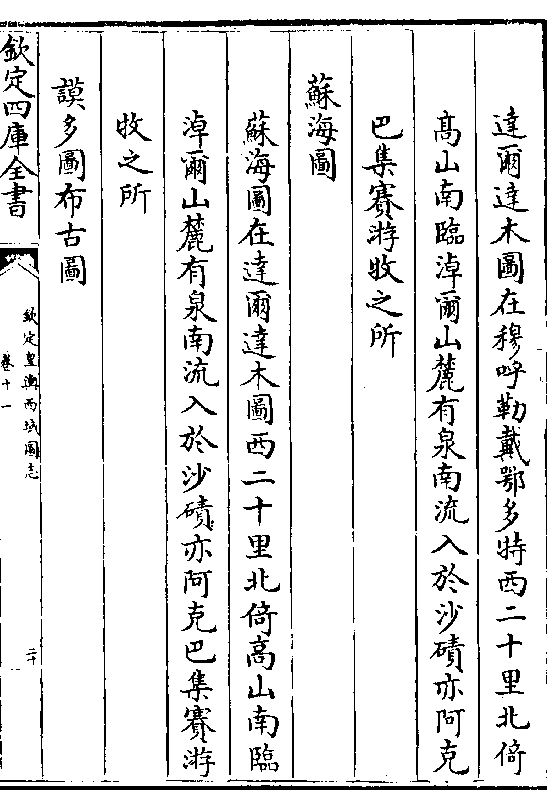 達爾達木圖在穆呼勒戴鄂多特西二十里北倚
髙山南臨淖爾山麓有泉南流入於沙磧亦阿克
巴集賽游牧之所
蘇海圖
蘇海圖在達爾達木圖西二十里北倚髙山南臨
淖爾山麓有泉南流入於沙磧亦阿克巴集賽游
牧之所
謨多圖布古圖
欽定四庫全書
欽定皇輿西域圖志
卷十一
二十